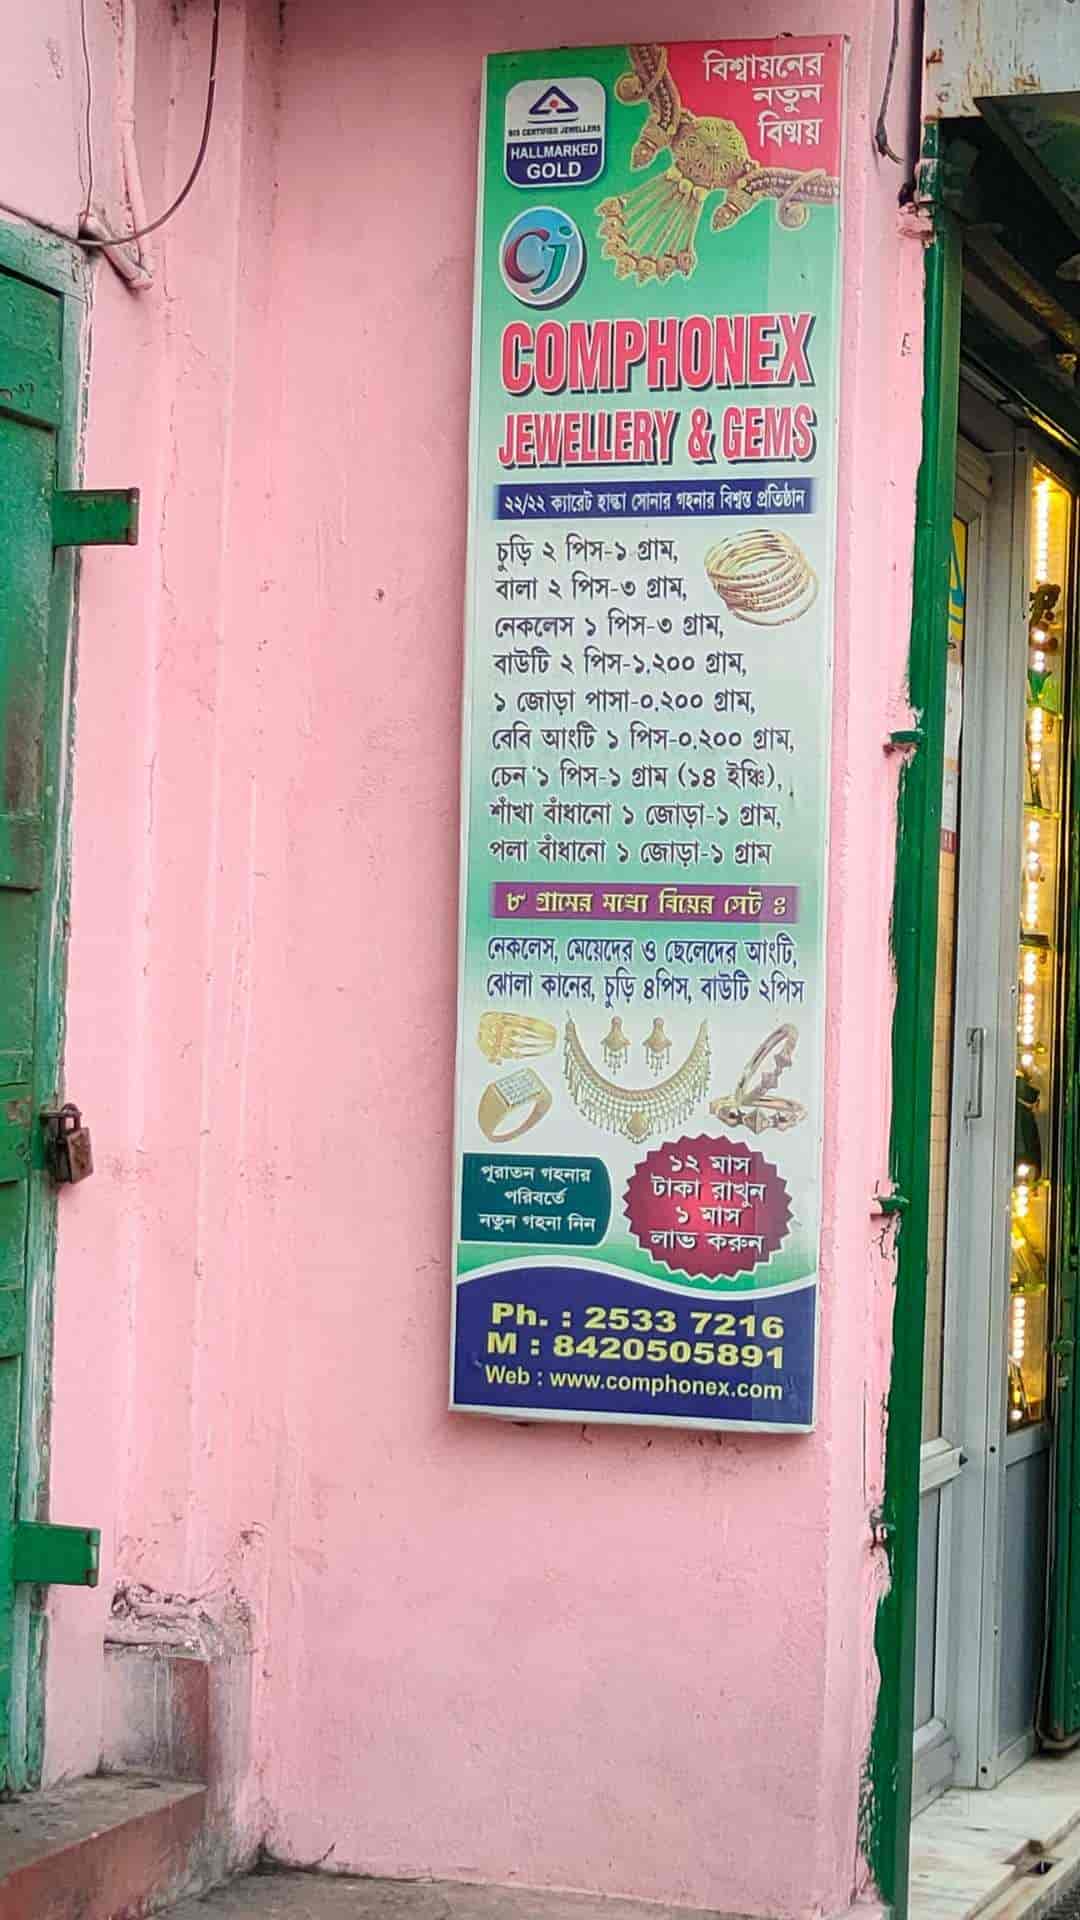 বিশ্বায়নের
নতুন
বিষ্ময়
BIS CERTIFIED JEWELLERS
HALLMARKED
GOLD
CJ
COMPHONEX
JEWELLERY & GEMS
২২/২২ ক্যারেট হাল্কা সোনার গহনার বিশ্বস্ত প্রতিষ্ঠান
চুড়ি ২ পিস-১ গ্রাম,
বালা ২ পিস-৩ গ্রাম,
নেকলেস ১ পিস-৩ গ্রাম,
বাউটি ২ পিস-১.২০০ গ্রাম,
১ জোড়া পাসা-০.২০০ গ্রাম,
বেবি আংটি ১ পিস-০.২০০ গ্রাম,
চেন ১ পিস-১ গ্রাম (১৪ ইঞ্চি),
শাঁখা বাঁধানো ১ জোড়া-১ গ্রাম,
পলা বাঁধানো ১ জোড়া-১ গ্রাম
৮ গ্রামের মধ্যে বিয়ের সেট ঃ
নেকলেস, মেয়েদের ও ছেলেদের আংটি,
ঝোলা কানের, চুড়ি ৪পিস, বাউটি ২পিস
পুরাতন গহনার
পরিবর্তে
নতুন গহনা নিন
১২ মাস
টাকা রাখুন
১ মাস
লাভ করুন
Ph. : 2533 7216
M : 8420505891
Web : www.comphonex.com